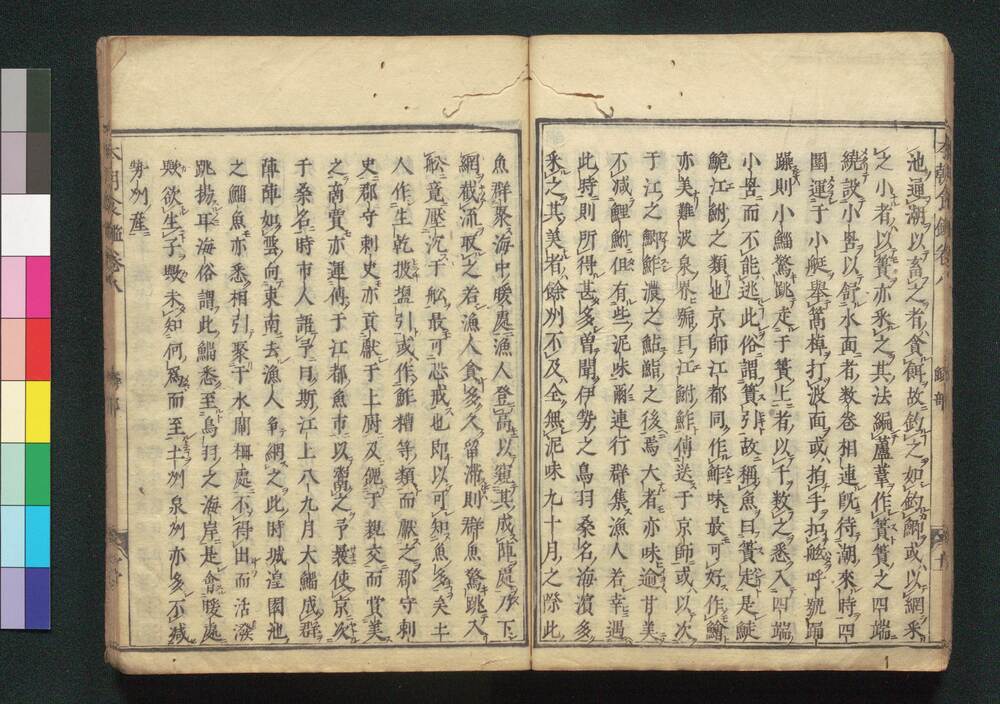 池通潮以畜之者貪餌故釣之如釣鯽或以網采
之小者以簀亦采之其法編蘆葦作簀簀之四端
繞設小畧以筍水面者数卷相連既待潮來時四
圍運子小艇舉篙棹打波面或拍手扣舷呼號踊
躁則小鯔驚跳走于簀上者以千数之悉入四端
小畧而不能逃此俗謂簀引故稱魚曰簀走是鯐
鮠江鮒之類也京師江都同作鮓味最可好作鱠
亦美難波泉界號曰江鮒鮓傳送于京師或以次
于江之鯽鮓濃之鮎鮨之後焉大者亦味逾甘美
不減鯉鮒但有些泥味爾連行群集漁人若幸遇
此時則所得甚多曽聞伊勢之鳥羽桑名海濱多
采之其美者餘州不及全無泥味九十月之際此
魚群聚海中暖處漁人登高以窺其成陣處乃下
網截流取之若漁人貪多久留滯則群魚驚跳入
舩竟壓沉于舩最可恐戒也即以可知魚多矣土
人作生乾披塩引或作鮓糟等類而獻之郡守刺
史郡守刺史亦貢獻于上厨及餽于親交而賞美
之商賈亦運傳于江都魚市以鬻之予嘗使京次
于桑名時市人語予曰斯江上八九月大鯔成群
陣陣如雲向東南去漁人争網之此時城湟園池
之鯔魚亦悉相引聚于水閘柵處不得出而活潑
跳揚耳海俗謂此鯔悉至鳥羽之海崖是會暖處
欤欲生子欤未知何爲而至土州泉州亦多不減
勢州産
本朝食鑑卷八
鱗部
十